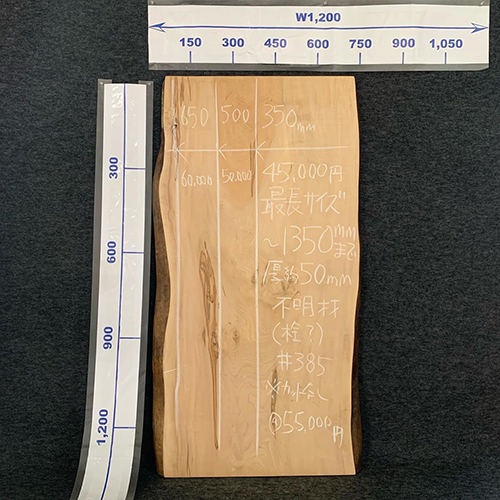 W1,200
150 300 450 600 750 900 1,050
300
600
900
1,200
650 500 350mm
60,000 50,000 45,000円
最長サイズ
~1350mm
まで
厚約50mm
不明材
(栓?)
#385
※カット無し
55,000円